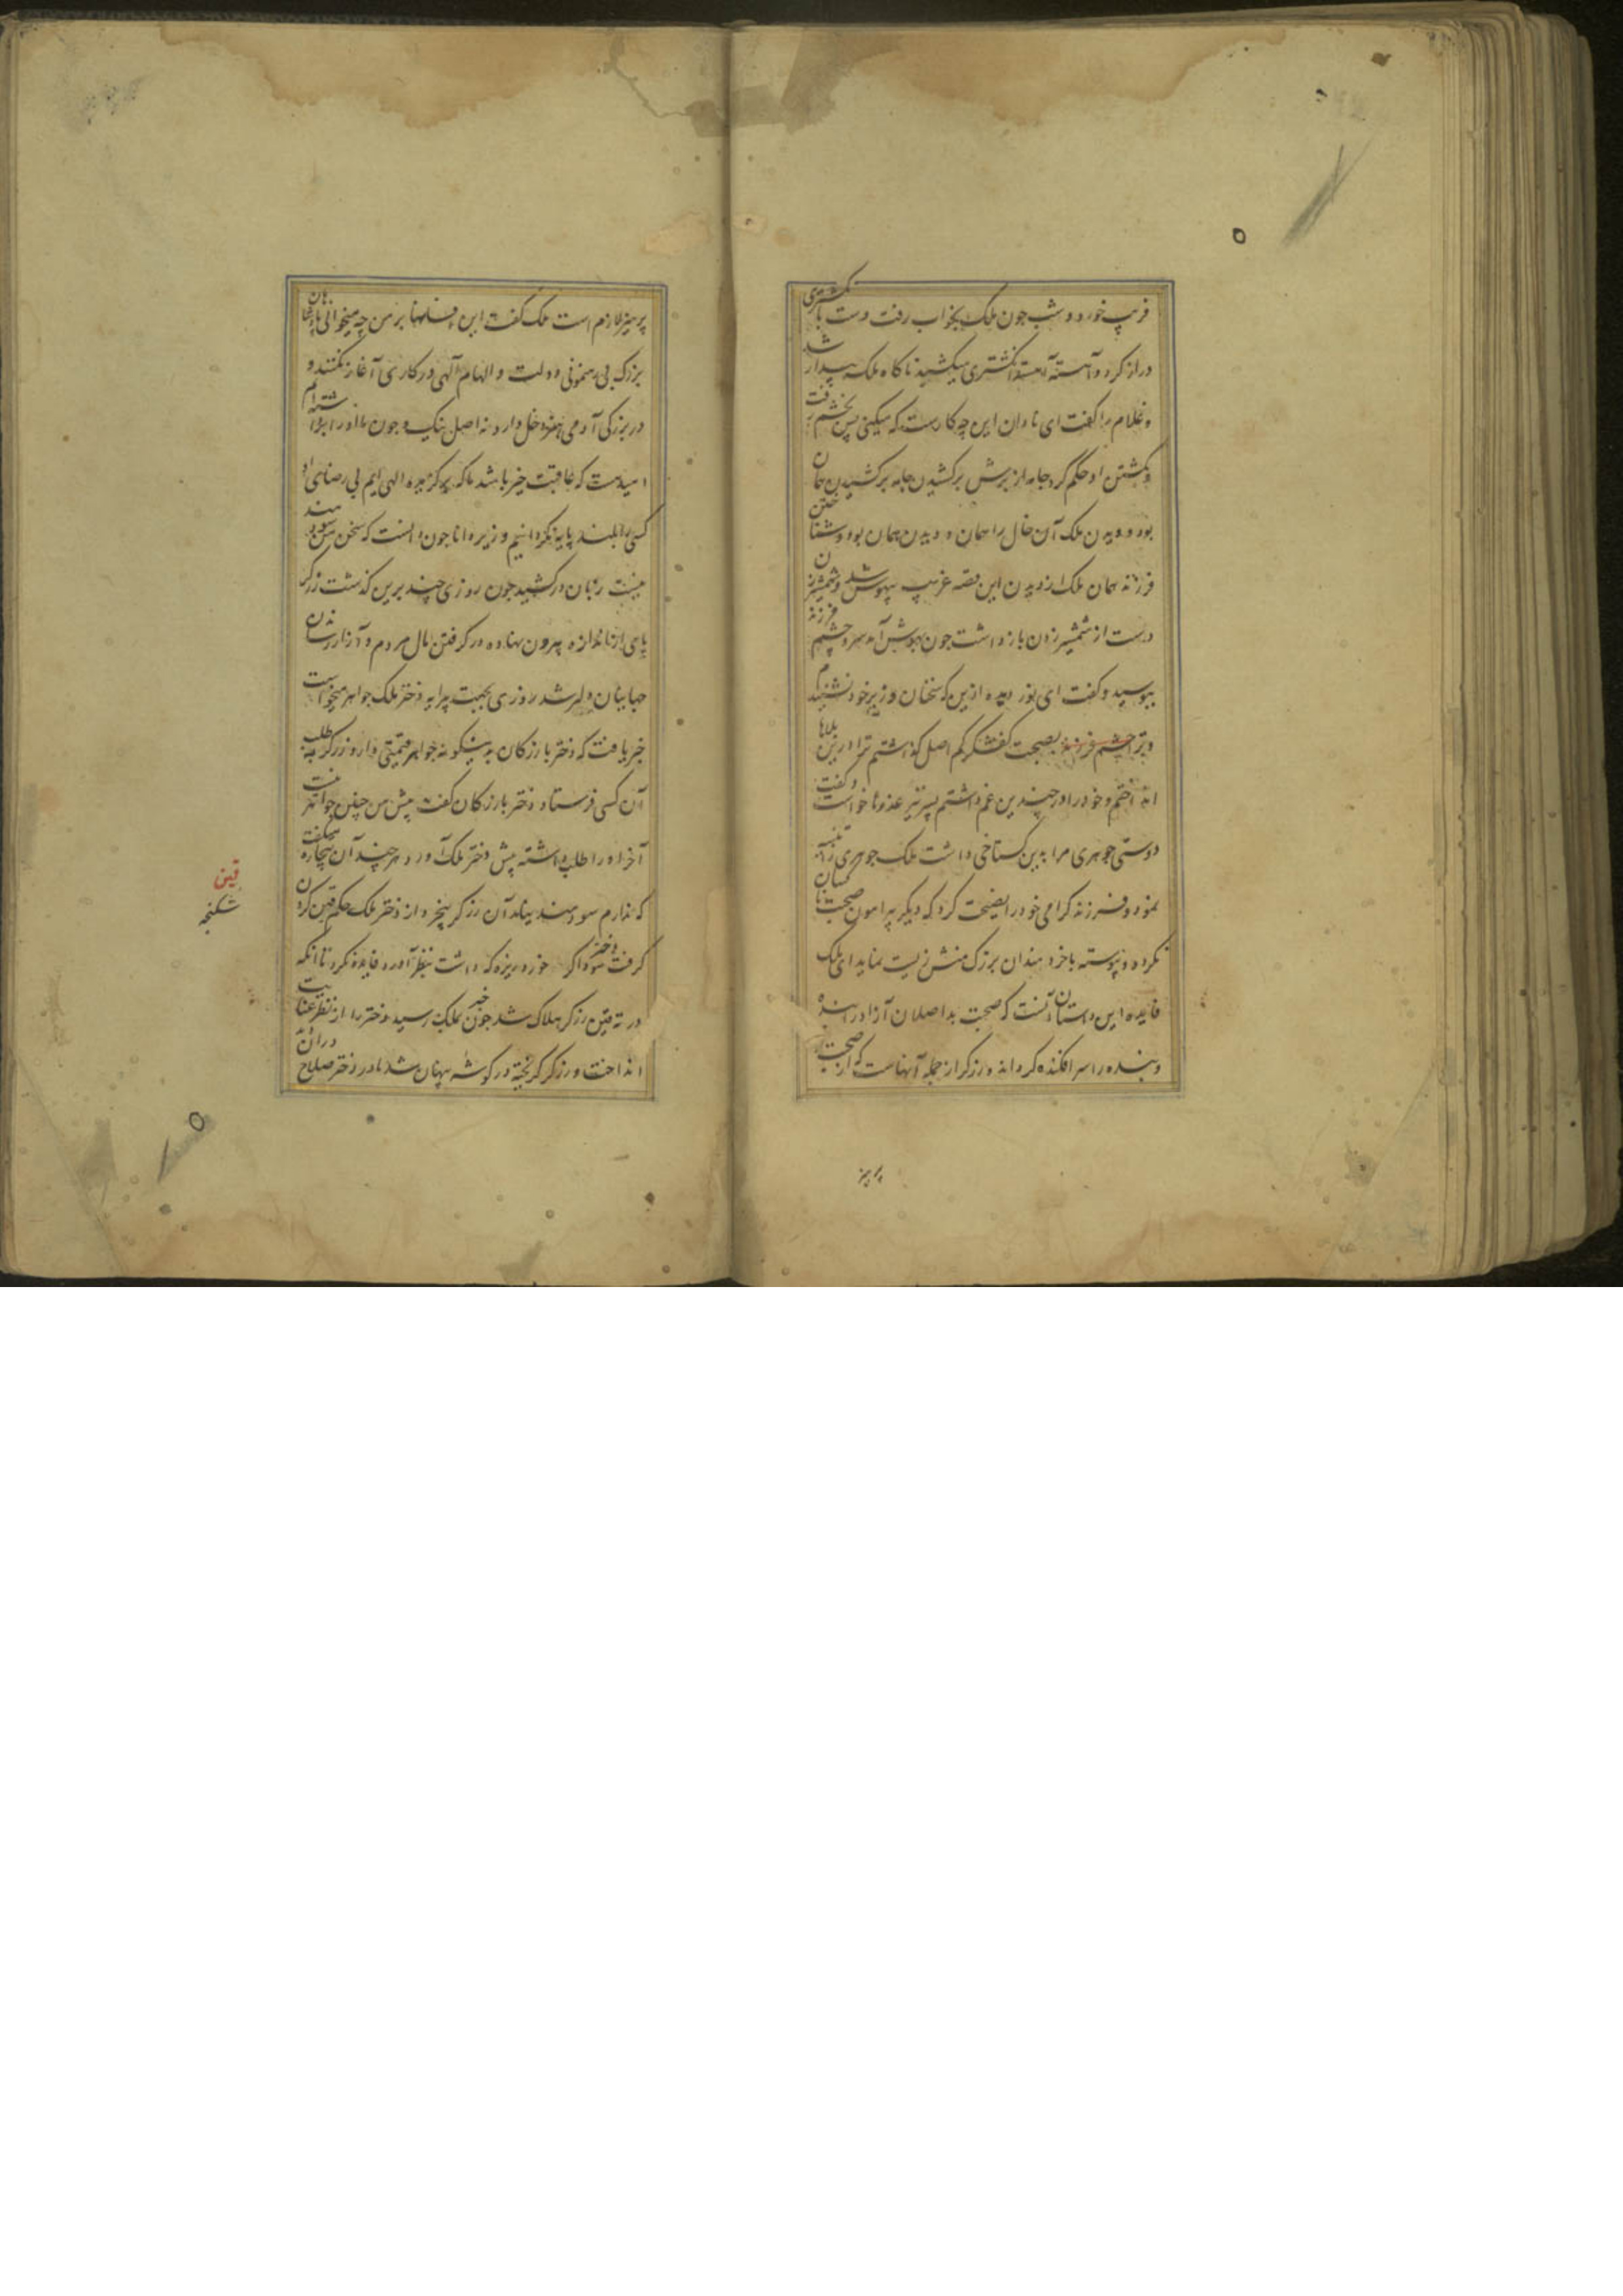 فریب خورد و شب جون ملک بخواب رفت دست بانکشتری
دراز کرد و آهسته آهسته انکشتری میکشید ناکاه ملک بیدار شد
و غلام را کفت ای نادان این چه کارست که میکنی پس بخشم رفت
و بکشتن او حکم کرد جامه از برش برکشیدن جامه برکشیدن همان
بود و دیدن ملک آن خال را همان و دیدن همان بود و شناختن
فرزند همان ملک از دیدن این قصه غریب بیهوش شد و شمشیر زن
دست از شمشیر زدن باز داشت جون بهوش آمد سر و چشم فرزند
ببوسید و کفت ای نور دیده ازین که سخنان وزیر خود نشنیدم
و ترا بصحبت کفشکر کم اصل کذاشتم ترا درین بلاها
انداختم و خود را در چندین غم داشتم پسر نیز عذرها خواست و کفت
دوستی جوهری مرا بدین کستاخی داشت ملک جوهری را تنبیه
نمود و فرزند کرامی خود را نصیحت کرد که دیکر پیرامون صحبت ناکسان
نکردد و پیوسته با خردمندان بزرک منش زیست نماید ای ملک
فایده این داستان آنست که صحبت بد اصلان آزاد را بنده
و بنده را سر افکنده کرداند و زرکر از جمله آنهاست که از صحبت او
پرهیز
پرهیز لازم است ملک کفت این افسانها بر من چه میخوانی پادشاهان
بزرک بی رهنمونی دولت و الهام آلهی در کاری آغاز نکنند و
در بزرکی آدمی هنر دخل دارد نه اصل نیک و جون ما او را برداشته ایم
امیدست که عاقبت خیر باشد ما که برکزیده الهی ایم بی رضای او
کسی را بلند پایه نکردانیم وزیر دانا جون دانست که سخن من سودمند
نیست زبان درکشید جون روزی چند برین کذشت زرکر
پای از اندازه بیرون نهاده در کرفتن مال مردم و آزار رساندن
جهانیان دلیر شد روزی بجهت پیرایه دختر ملک جواهر میخواست
خبر یافت که دختر بازرکان بدینکونه جواهر قیمتی دارد زرکر بطلب
آن کسی فرستاد دختر بازرکان کفت پیش من چنین جواهر نیست
آخر او را طلب داشته پیش دختر ملک آورد هر چند آن بیچاره میکفت
که ندارم سودمند نیامد آن زرکر بیخرد از دختر ملک حکم قین کردن
کرفت دختر سوداکر خورد ریزه که داشت بنظر آورد فایده نکرد تا آنکه
در ته قین زرکر هلاک شد جون خبر بملک رسید دختر را از نظر عنایت
انداخت و زرکر کریخته در کوشه پنهان شد مادر دختر صلاح دران دید
قین
شکنجه